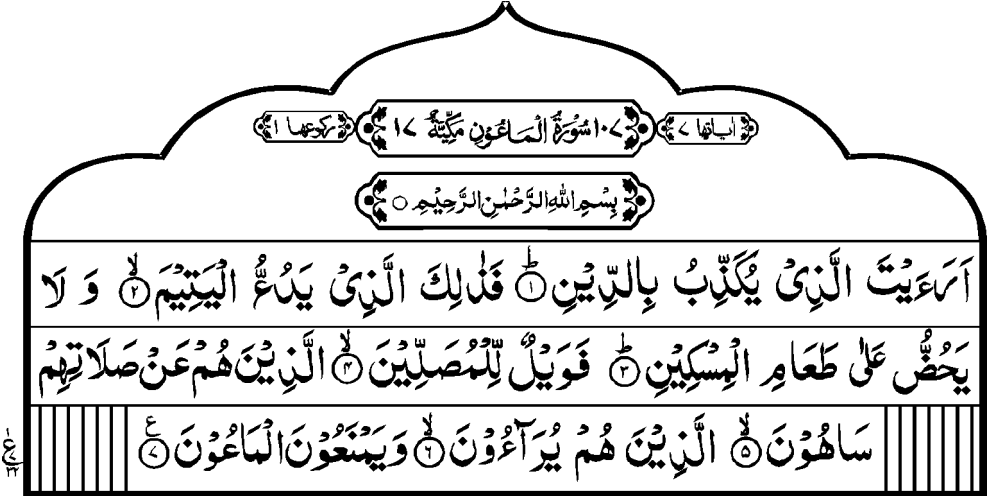 اٰیاتھا ۷ ۱۰۷ سُوْرَةُ الْمَاعُوْنِ مَكِّيَّةٌ ۱۷ رکوعھا ۱
بِسْمِ اللّٰهِ الرَّحْمٰنِ الرَّحِيْمِ ○
اَرَءَيْتَ الَّذِىْ يُكَذِّبُ بِالدِّيْنِ ؕ۱ فَذٰلِكَ الَّذِىْ يَدُعُّ الْيَتِيْمَ ۙ۲ وَ لَا
يَحُضُّ عَلٰى طَعَامِ الْمِسْكِيْنِ ؕ۳ فَوَيْلٌ لِّلْمُصَلِّيْنَ ۙ۴ الَّذِيْنَ هُمْ عَنْ صَلَاتِهِمْ
سَاهُوْنَ ۙ۵ الَّذِيْنَ هُمْ يُرَآءُوْنَ ۙ۶ وَيَمْنَعُوْنَ الْمَاعُوْنَ ۷ ع